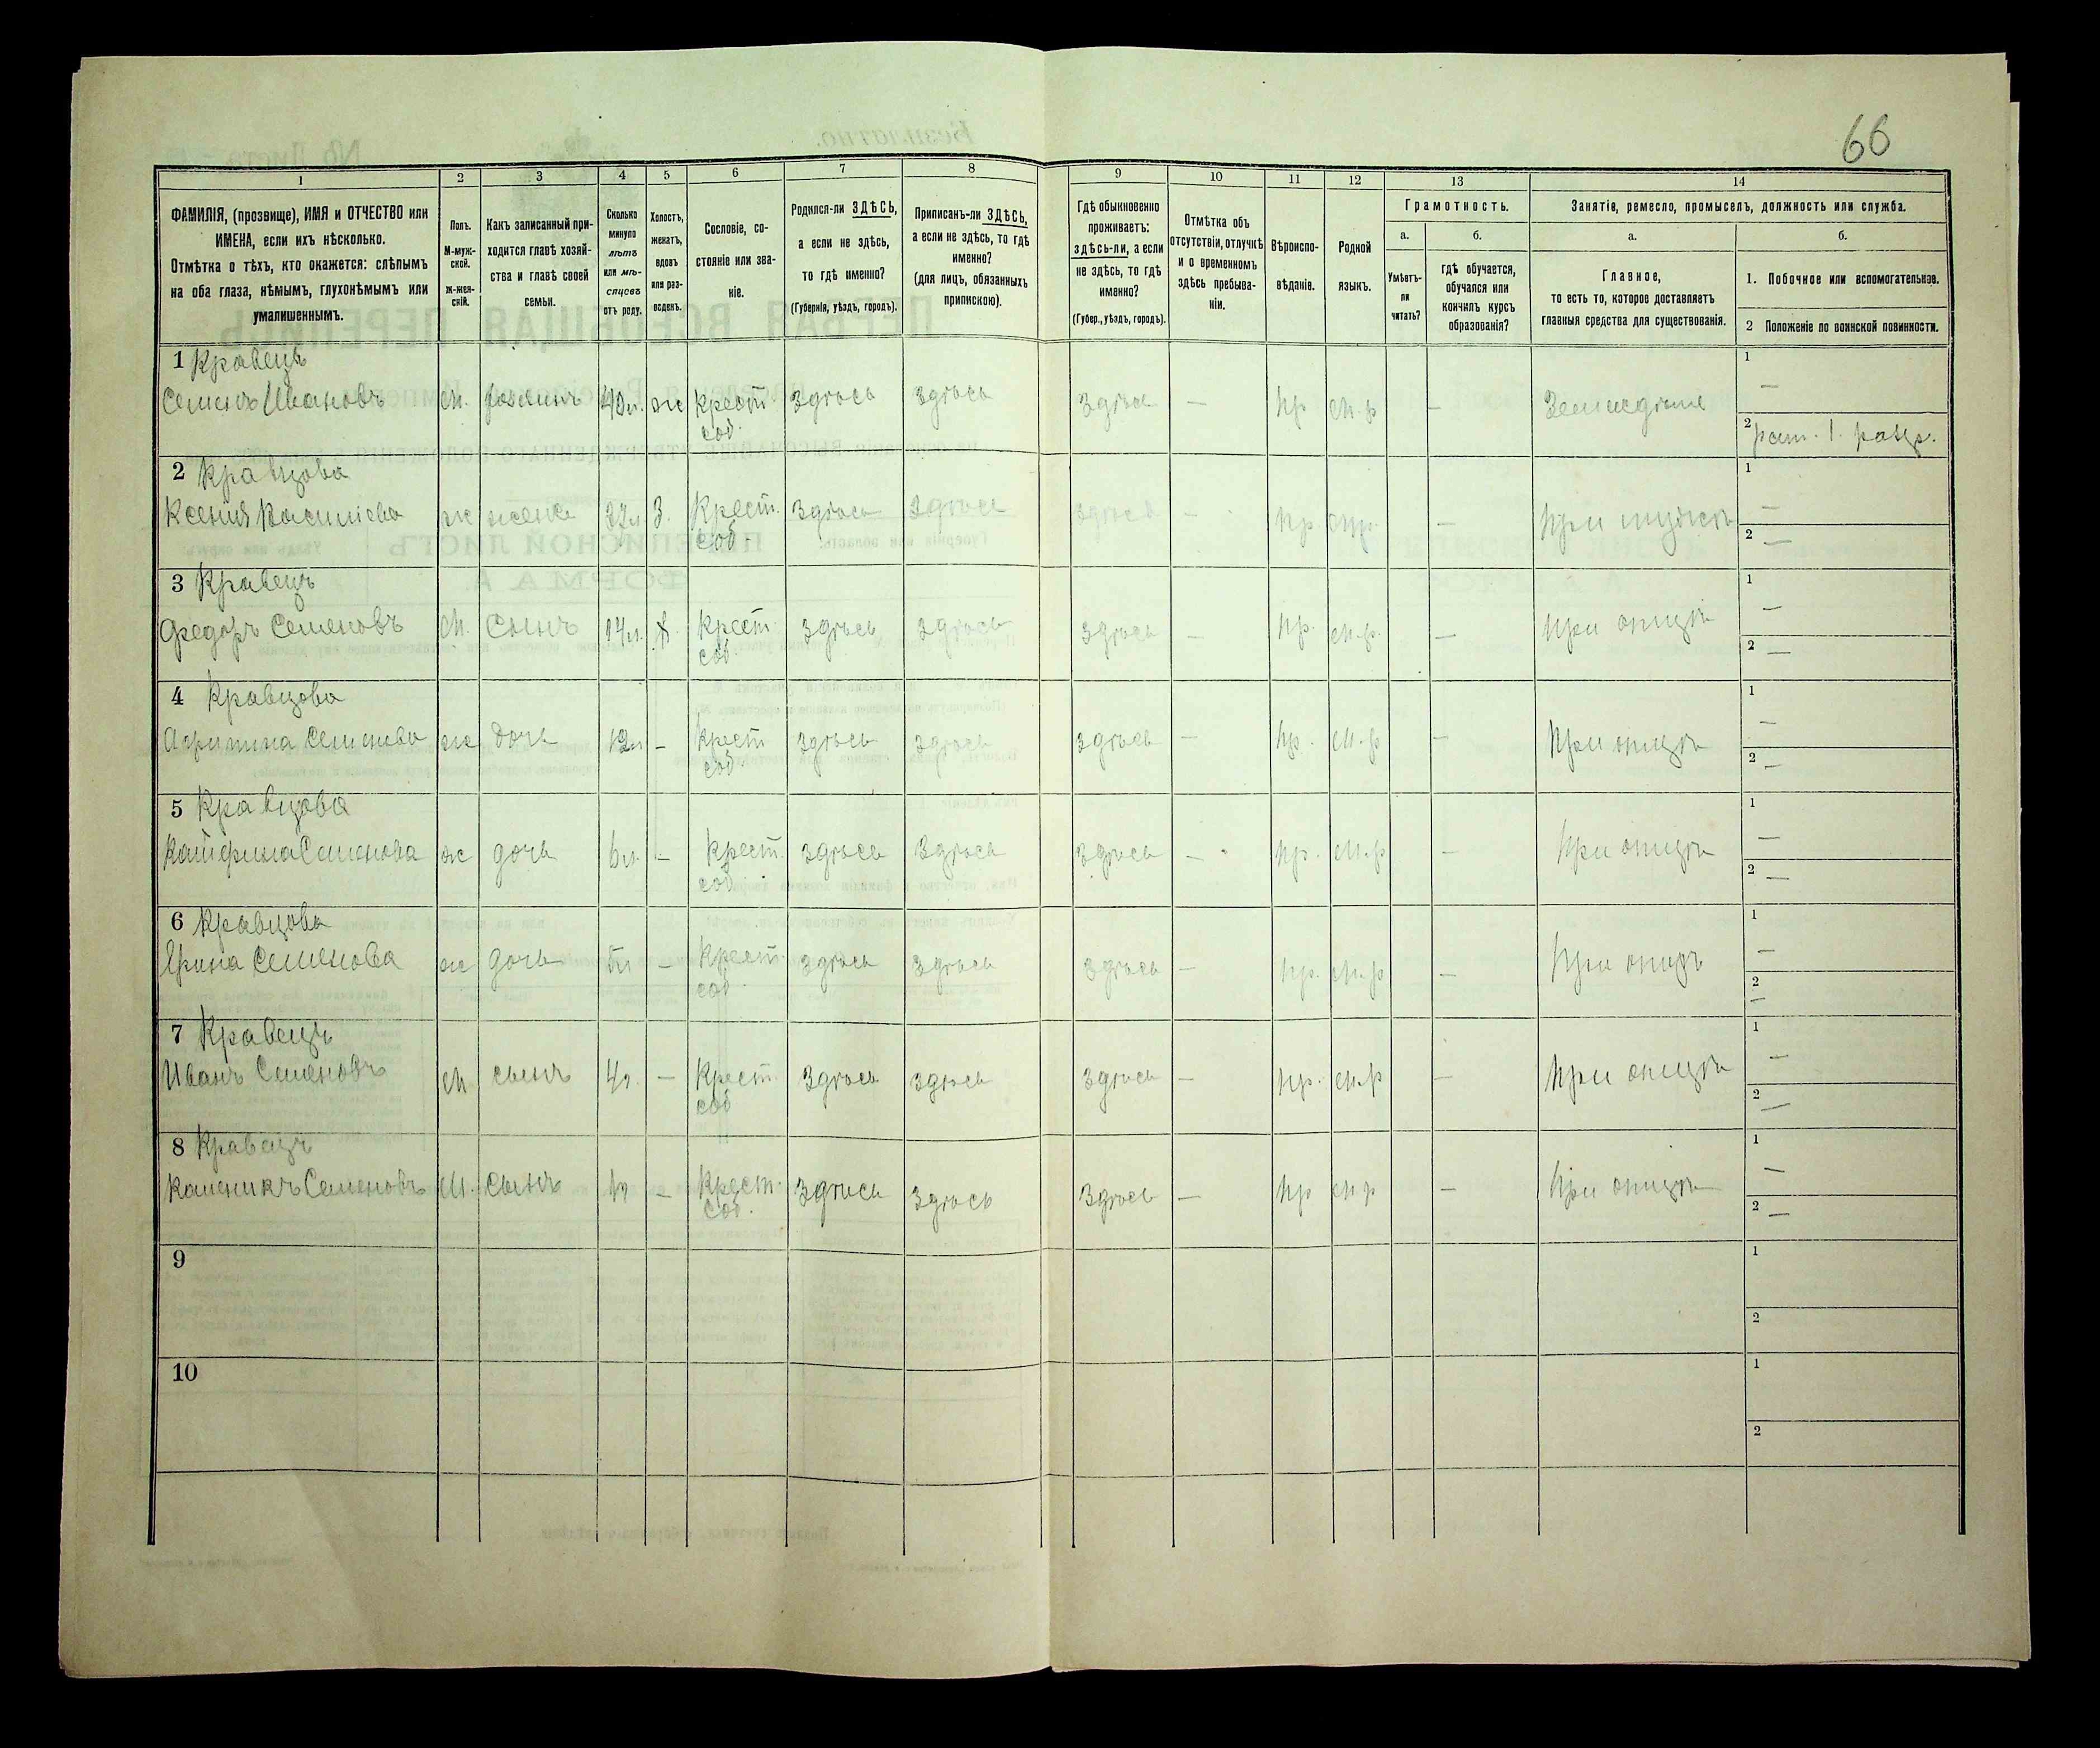 66
1
2
3
4
5
6
7
8
9
10
11
12
13
14
ФАМИЛІЯ, (прозвище), ИМЯ и ОТЧЕСТВО или
ИМЕНА, если ихъ нѣсколько.
Отмѣтка о тѣхъ, кто окажется: слѣпымъ
на оба глаза, нѣмымъ, глухонѣмымъ или
умалишеннымъ.
Полъ.
М-муж-
ской.
Ж-жен-
скій.
Какъ записанный при-
ходится главѣ хозяй-
ства и главѣ своей
семьи.
Сколько
минуло
лѣтъ
или мѣ-
сяцевъ
отъ роду.
Холостъ,
женатъ,
вдовъ
или раз-
веденъ.
Сословіе, со-
стояніе или зва-
ніе.
Родился-ли ЗДѢСЬ,
а если не здѣсь,
то гдѣ именно?
(Губернія, уѣздъ, городъ).
Приписанъ-ли ЗДѢСЬ,
а если не здѣсь, то гдѣ
именно?
(для лицъ, обязанныхъ
припискою).
Гдѣ обыкновенно
проживаетъ:
здѣсь-ли, а если
не здѣсь, то гдѣ
именно?
(Губер., уѣздъ, городъ).
Отмѣтка объ
отсутствіи, отлучкѣ
и о временномъ
здѣсь пребыва-
ніи.
Вѣроиспо-
вѣданіе.
Родной
языкъ.
Грамотность.
а.
Умѣетъ-
ли
читать?
б.
гдѣ обучается,
обучался или
кончилъ курсъ
образованія?
Занятіе, ремесло, промыселъ, должность или служба.
а.
Главное,
то есть то, которое доставляетъ
главныя средства для существованія.
б.
1. Побочное или вспомогательное.
2 Положеніе по воинской повинности.
1 Кравецъ
Семенъ Ивановъ м. хозяинъ 40л. ж Крест. Здѣсь Здѣсь Здѣсь — пр м.р — Земледѣліе
соб.
1 —
2 рат. 1. разр.
2 Кравцова
Ксенія Василіева ж жена 37л З. Крест. Здѣсь Здѣсь Здѣсь — пр м.р. — При мужѣ
соб.
1 —
2 —
3 Кравецъ
Федоръ Семеновъ м. Сынъ 17л. Х. Крест. Здѣсь Здѣсь Здѣсь — пр. м.р. — При отцѣ
соб.
1 —
2 —
4 Кравцова
Агрипина Семенова ж дочь 12л — Крест Здѣсь Здѣсь Здѣсь — пр. м.р — При отцѣ
соб.
1 —
2 —
5 Кравцова
Катерина Семенова ж дочь 6л. — Крест. Здѣсь Здѣсь Здѣсь — пр. м.р — При отцѣ
соб.
1 —
2 —
6 Кравцова
Ярина Семенова ж дочь 5л — Крест. Здѣсь Здѣсь Здѣсь — пр. м.р — При отцѣ
соб.
1 —
2 —
7 Кравецъ
Иванъ Семеновъ м сынъ 4л. — Крест. Здѣсь Здѣсь Здѣсь — пр. м.р — При отцѣ
соб
1 —
2 —
8 Кравецъ
Каленикъ Семеновъ м. Сынъ — Крест. Здѣсь Здѣсь Здѣсь — пр м р — При отцѣ
соб.
1 —
2 —
9
1
2
10
1
2